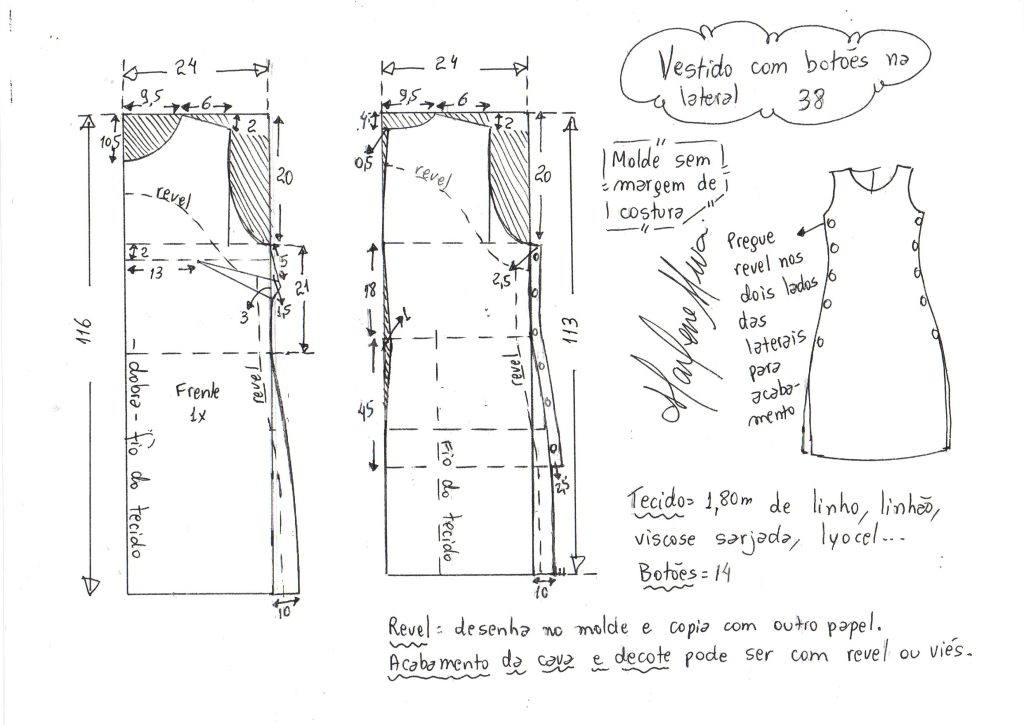 Vestido com botões na
lateral 38
Molde sem
margem de
costura
Marlene Mukai
Pregue
revel nos
dois lados
das
laterais
para
acaba-
mento
24
9,5
6
10,5
2
20
revel
2
13
5
21
1,5
3
116
revel
Frente
1x
dobra - fio do tecido
10
24
9,5
6
4
2
0,5
revel
20
2,5
18
1
113
revel
45
Fio do tecido
2,5
10
Tecido= 1,80m de linho, linhão,
viscose sarjada, lyocel...
Botões = 14
Revel = desenha no molde e copia com outro papel.
Acabamento da cava e decote pode ser com revel ou viés.